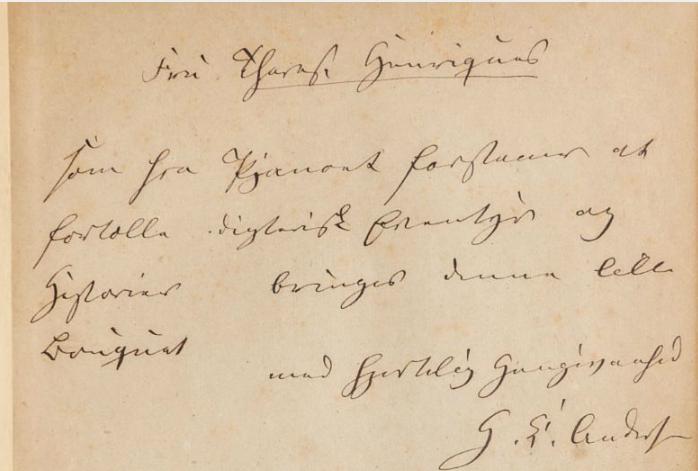 Fru Therese Henriques
som fra Pjanoet forstaaer at
fortælle digterisk Eventyr og
Historier bringes denne lille
Bouquet
med hjertelig Hengivenhed
H. C. Andersen